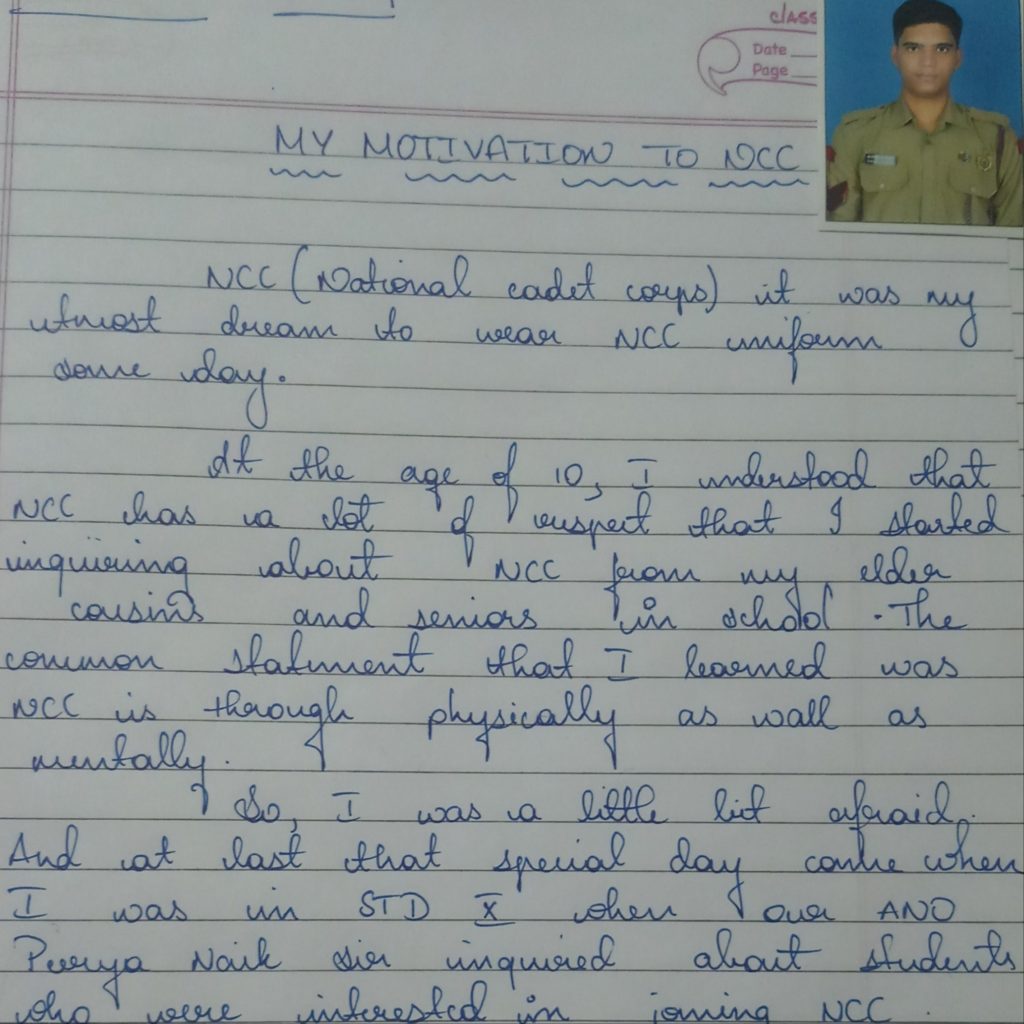 class
Date
Page
MY MOTIVATION TO NCC
NCC (National cadet corps) it was my
utmost dream to wear NCC uniform
some day.
At the age of 10, I understood that
NCC has a lot of respect that I started
inquiring about NCC from my elder
cousins and seniors in school. The
common statment that I learned was
NCC is through physically as wall as
mentally.
So, I was a little bit afraid.
And at last that special day come when
I was in STD X when our ANO
Naik sir inquired about students
who were interested in joining NCC.